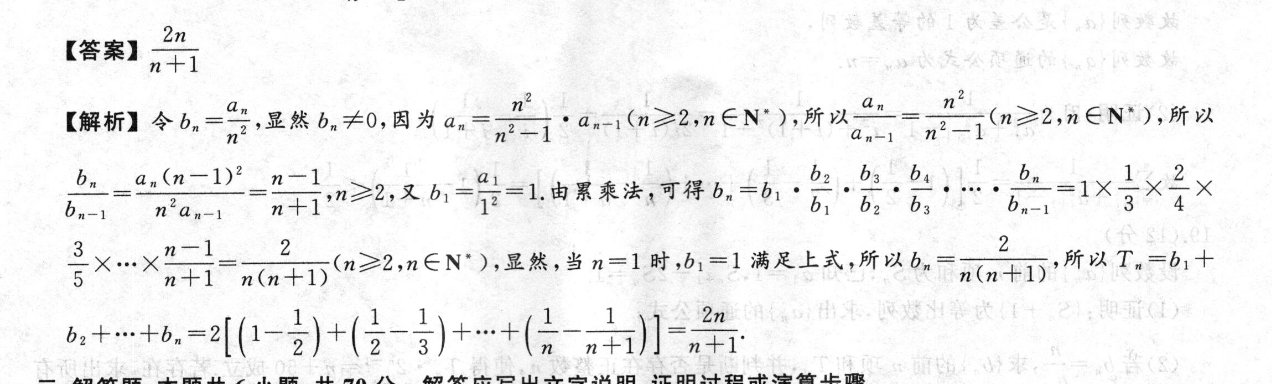 【答案】2n/(n+1)
【解析】令 bₙ=aₙ/n²,显然 bₙ≠0,因为 aₙ=n²/(n²−1)·aₙ₋₁(n≥2,n∈N*),所以 aₙ/aₙ₋₁=n²/(n²−1)(n≥2,n∈N*),所以
bₙ/bₙ₋₁=aₙ(n−1)²/(n²aₙ₋₁)=(n−1)/(n+1),n≥2,又 b₁=a₁/1²=1.由累乘法,可得 bₙ=b₁·b₂/b₁·b₃/b₂·b₄/b₃·…·bₙ/bₙ₋₁=1×1/3×2/4×
3/5×…×(n−1)/(n+1)=2/(n(n+1))(n≥2,n∈N*),显然,当 n=1 时,b₁=1 满足上式,所以 bₙ=2/(n(n+1)),所以 Tₙ=b₁+
b₂+…+bₙ=2[(1−1/2)+(1/2−1/3)+…+(1/n−1/(n+1))]=2n/(n+1).